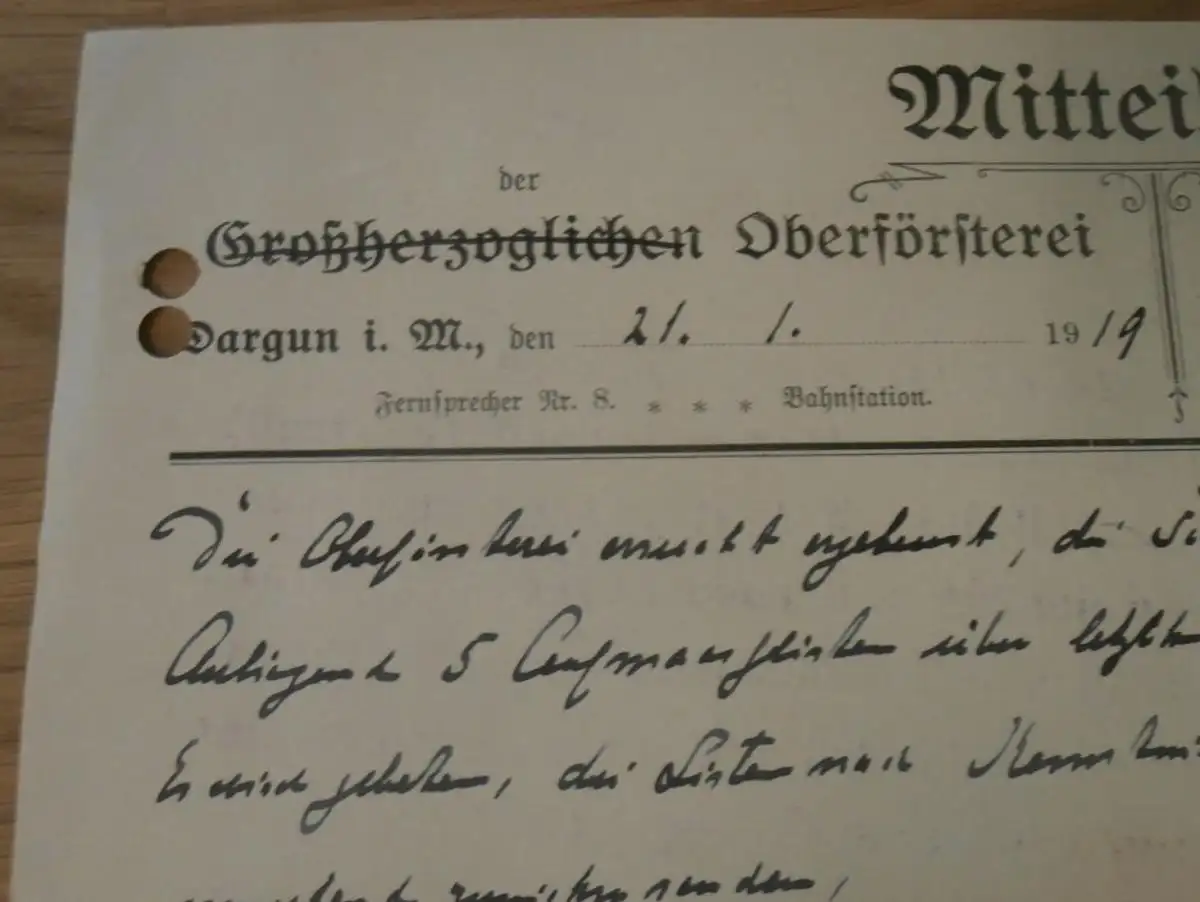 Mittei
der
Großherzoglichen Oberförsterei
Dargun i. M., den 21. 1. 1919
Fernsprecher Nr. 8. * * * Bahnstation.
Die Oberförsterei ersucht ergebenst, die
Anliegend 5 über
Es wird gebeten, die Listen nach
zurückzusenden,